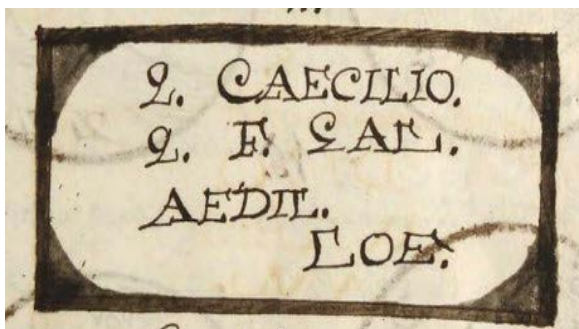 Q. CAECILIO.
Q. F. GAL.
AEDIL.
LOE.